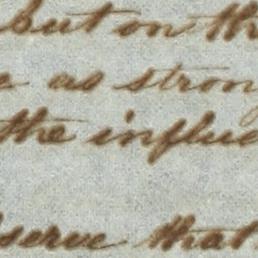 but on th
as stron
the influe
serve that